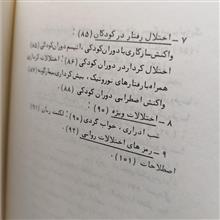 ۷ – اختلال رفتار در کودکان (۸۵)
واکنش سازگاری با دوران کودکی، اتیسم دوران کودکی (۸۵)
اختلال کردار در دوران کودکی (۸۶): اختلالات کرداری
همراه با رفتارهای نوروتیک، بیش کرداری
واکنش اضطرابی دوران کودکی (۸۸).
۸ – اختلالات ویژه (۹۰)
شب ادراری، خواب گردی (۹۰): لکنت زبان (۹۱)
۹ – رمزهای اختلالات روانی (۹۴)
اصطلاحات (۱۰۱).